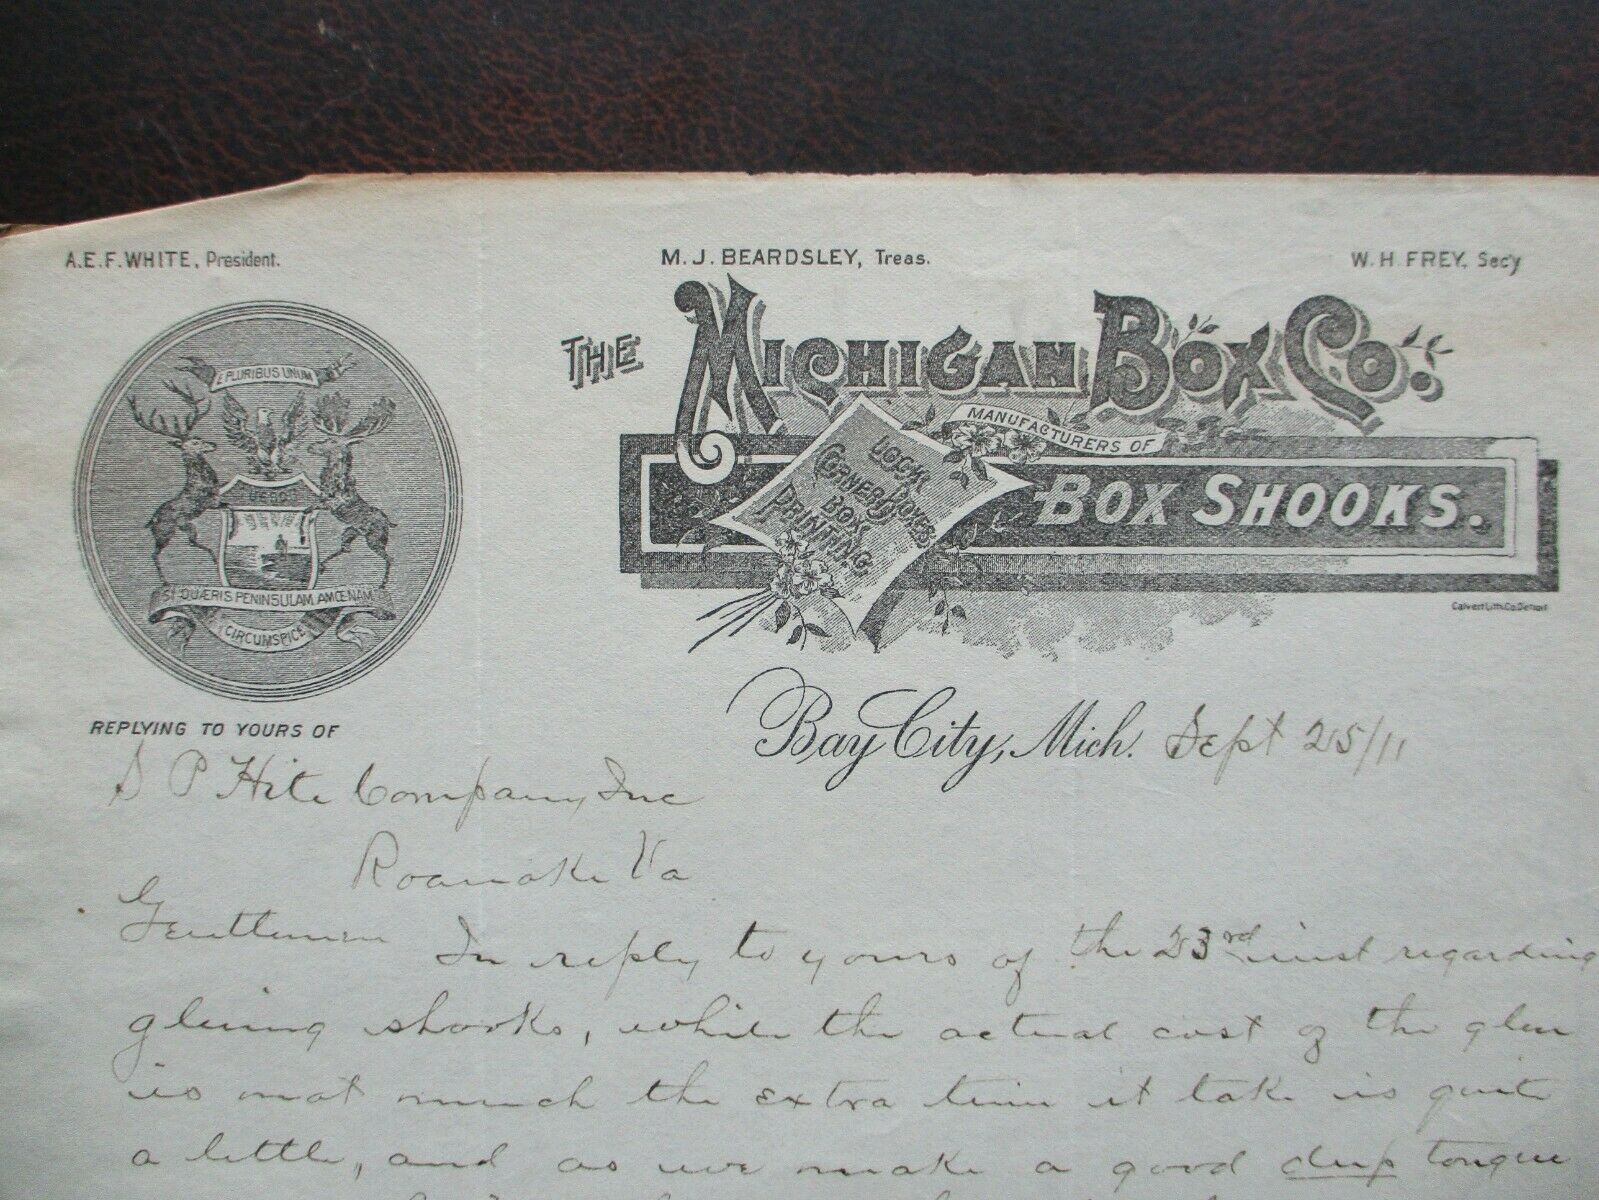 A.E.F. WHITE, President.
M. J. BEARDSLEY, Treas.
W. H. FREY, Sec'y
E PLURIBUS UNUM
TUEBOR
SI QUÆRIS PENINSULAM AMŒNAM
CIRCUMSPICE
THE MICHIGAN BOX CO.
MANUFACTURERS OF
LOCK
CORNER BOXES
BOX
PRINTING
BOX SHOOKS.
Calvert Lith. Co. Detroit
REPLYING TO YOURS OF
Bay City, Mich. Sept 25/11
S P Hite Company, Inc
Roanoke Va
Gentlemen In reply to yours of the 23rd inst regarding
gluing shooks, while the actual cost of the glue
is not much the extra time it take is quite
a little, and as we make a good deep tongue